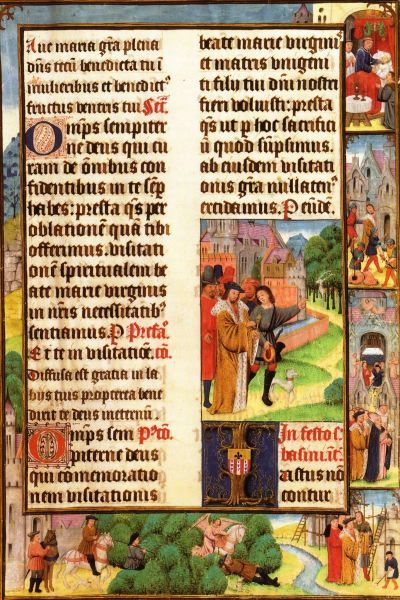 Aue maria gr̄a plena
dn̄s tecū benedicta tu ī
mulieribus et benedict⁹
fructus ventris tui Sc̄a.
Omp̄s sempiter
ne deus qui cu
ram de ōnibus con
fidentibus in te sēp̄
habes: presta q̄s per
oblationem quā tibi
offerimus. visitati
onē spiritualem be
ate marie virginis
in nr̄is necessitatib⁹
sentiamus. P Prefa.
Et te in visitatiōe. cō.
Diffusa est gratia in la
biis tuis propterea bene
dixit te deus ineternū.
Omp̄s sem P⁹cō.
piterne deus
qui comemoratio
nem visitationis
beate marie virginis
et matris vnigeni
ti filij tui dn̄i nostri
fieri voluisti: presta
q̄s ut p hoc sacrifici
ū quod sūpsimus.
ab eiusdem visitati
onis gr̄a nullaten⁹
recidamus. P eūdē.
In festo s.
basini. it̄.
astus nō
contur